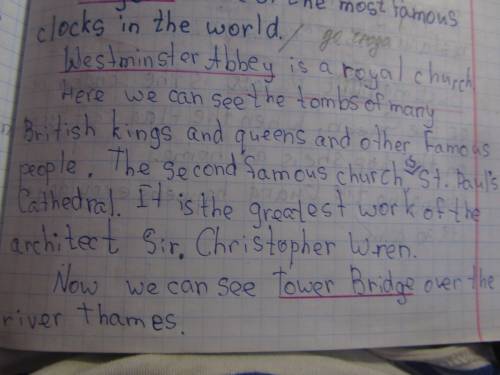 of the most famous
clocks in the world./ до сюда
Westminster Abbey is a royal church
Here we can see the tombs of many
British kings and queens and other famous
people. The second famous church is St. Paul's
Cathedral. It is the greatest work of the
architect Sir. Christopher Wren.
Now we can see tower Bridge over the
river thames.